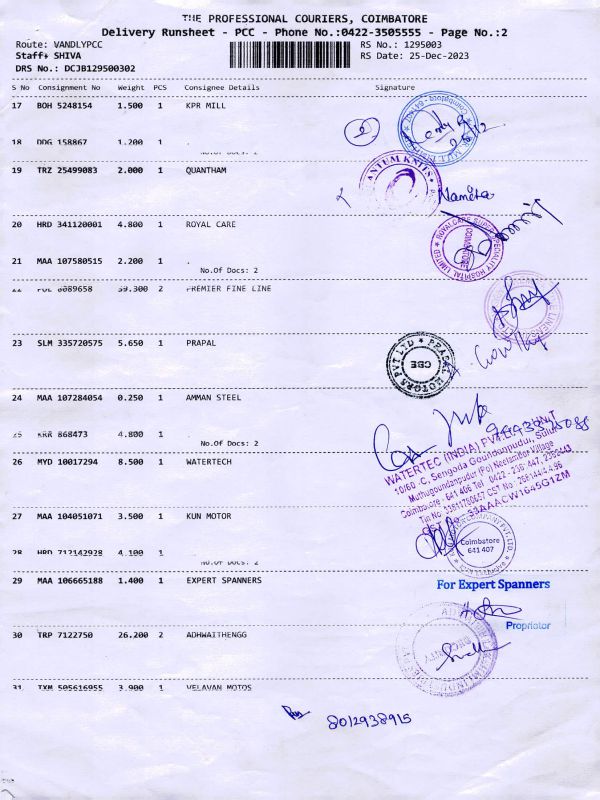 THE PROFESSIONAL COURIERS, COIMBATORE
Delivery Runsheet - PCC - Phone No.:0422-3505555 - Page No.:2
Route: VANDLYPCC
RS No.: 1295003
Staff: SHIVA
RS Date: 25-Dec-2023
DRS No.: DCJB129500302
S No Consignment No Weight PCS Consignee Details Signature
17 BOH 5248154 1.500 1 KPR MILL
18 DDG 158867 1.200 1
No.Of Docs: 2
19 TRZ 25499083 2.000 1 QUANTHAM
ANTUM KNITS
Namitha
20 HRD 341120001 4.800 1 ROYAL CARE
ROYAL CARE SUPER SPECIALITY HOSPITAL LIMITED
COIMBATORE
21 MAA 107580515 2.200 1
No.Of Docs: 2
22 8089658 39.300 2 PREMIER FINE LINE
23 SLM 335720575 5.650 1 PRAPAL
PRAPAL MOTORS PVT LTD
CBE
24 MAA 107284054 0.250 1 AMMAN STEEL
25 KRR 868473 4.800 1
No.Of Docs: 2
26 MYD 10017294 8.500 1 WATERTECH
WATERTEC (INDIA) PVT. LTD., UNIT
10/60 -C, Sengoda Goundanpudur, Sulur
Muthugoundanpudur (Po) Neelambur Village
Coimbatore - 641 406
33AAACW1645G1ZM
27 MAA 104051071 3.500 1 KUN MOTOR
Coimbatore
641 407
28 HRD 712142928 4.100 1
No.Of Docs: 2
29 MAA 106665188 1.400 1 EXPERT SPANNERS
For Expert Spanners
Proprietor
30 TRP 7122750 26.200 2 ADHWAITHENGG
31 TXM 505616955 3.900 1 VELAVAN MOTOS
8012938915